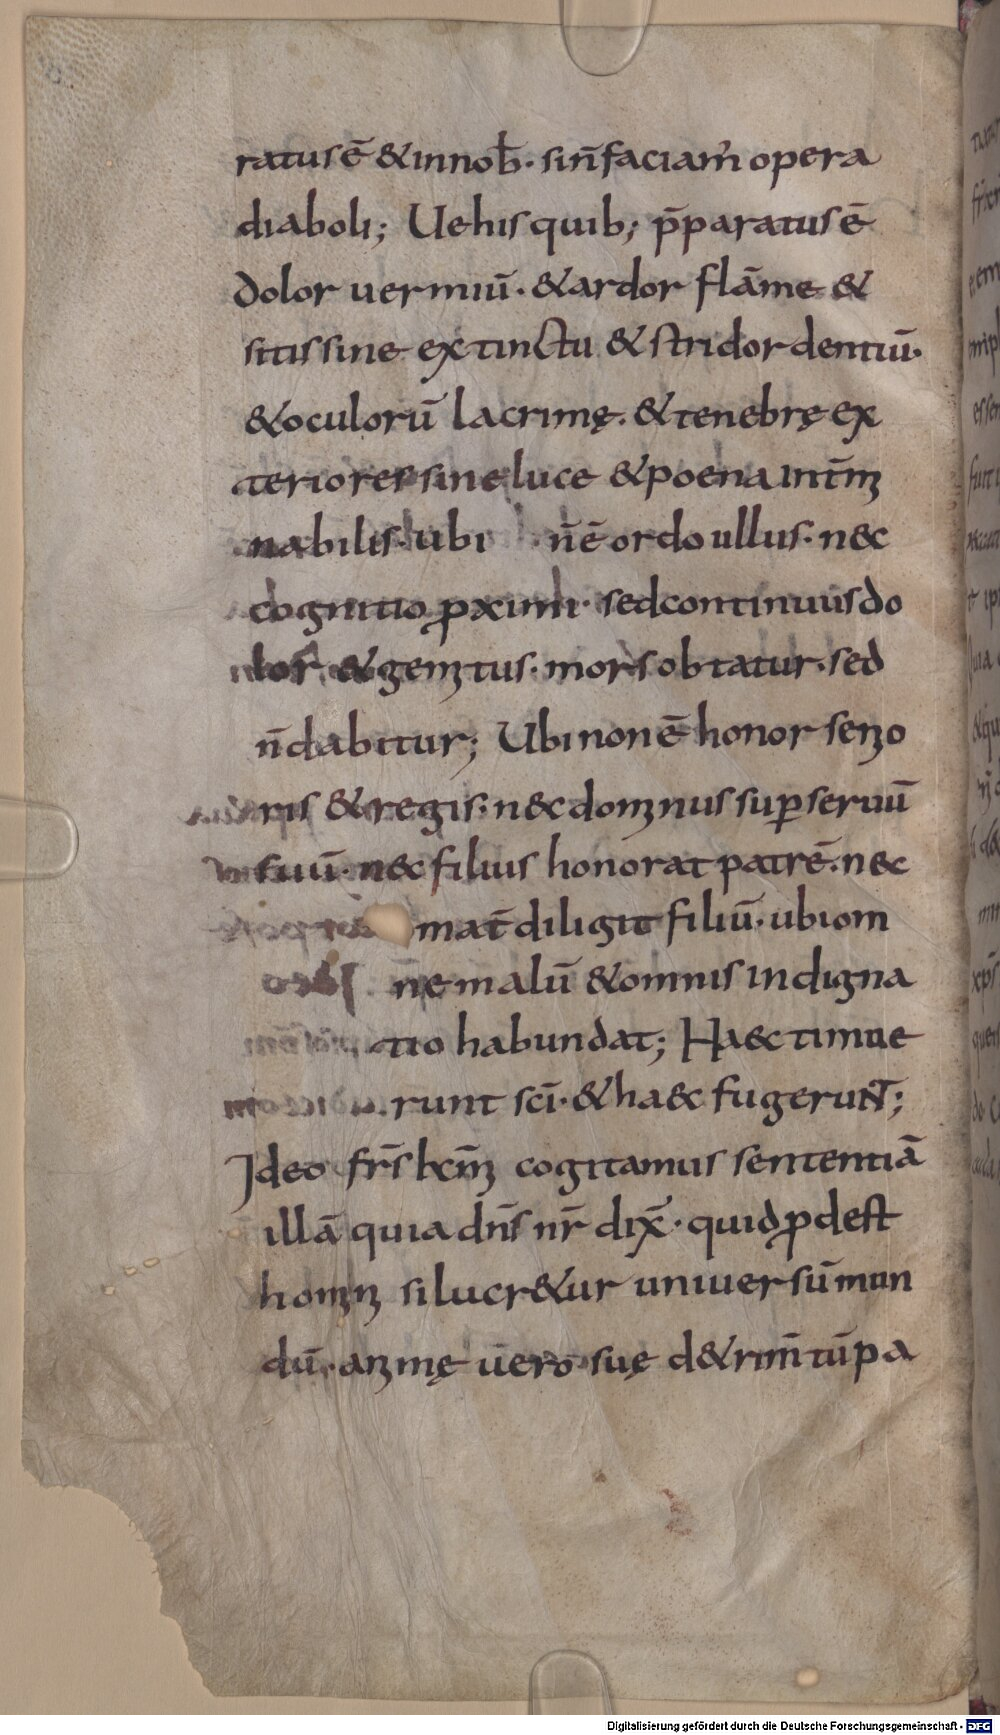 ratus ē & in nob̄. sin̄ faciam̄ opera
diaboli; Ue his quib; p̄paratus ē
dolor uermiū. & ardor flāme &
sitis sine extinctu & stridor dentiū.
& oculorū lacrimę. & tenebrę ex
teriores sine luce & poena intm̄
nabilis. ubi n̄ ē ordo ullus. nec
cognitio ꝓximi. sed continuus do
lor & gemitus. mors obtatur. sed
n̄ dabitur; Ubi non ē honor senio
ris & regis. nec dominus suꝑ seruū
suū. nec filius honorat patrē. nec
mat̄ diligit filiū. ubi om
n̄e malū & omnis indigna
tio habundat; Haec timue
runt sc̄i. & haec fugerunt;
Ideo fr̄s kr̄mi cogitamus sententiā
illā quia dn̄s nr̄ dix̄. quid ꝓdest
homini si lucr&ur uniuersū mun
dū. animę uero suę d&rim̄tū pa
Digitalisierung gefördert durch die Deutsche Forschungsgemeinschaft - DFG